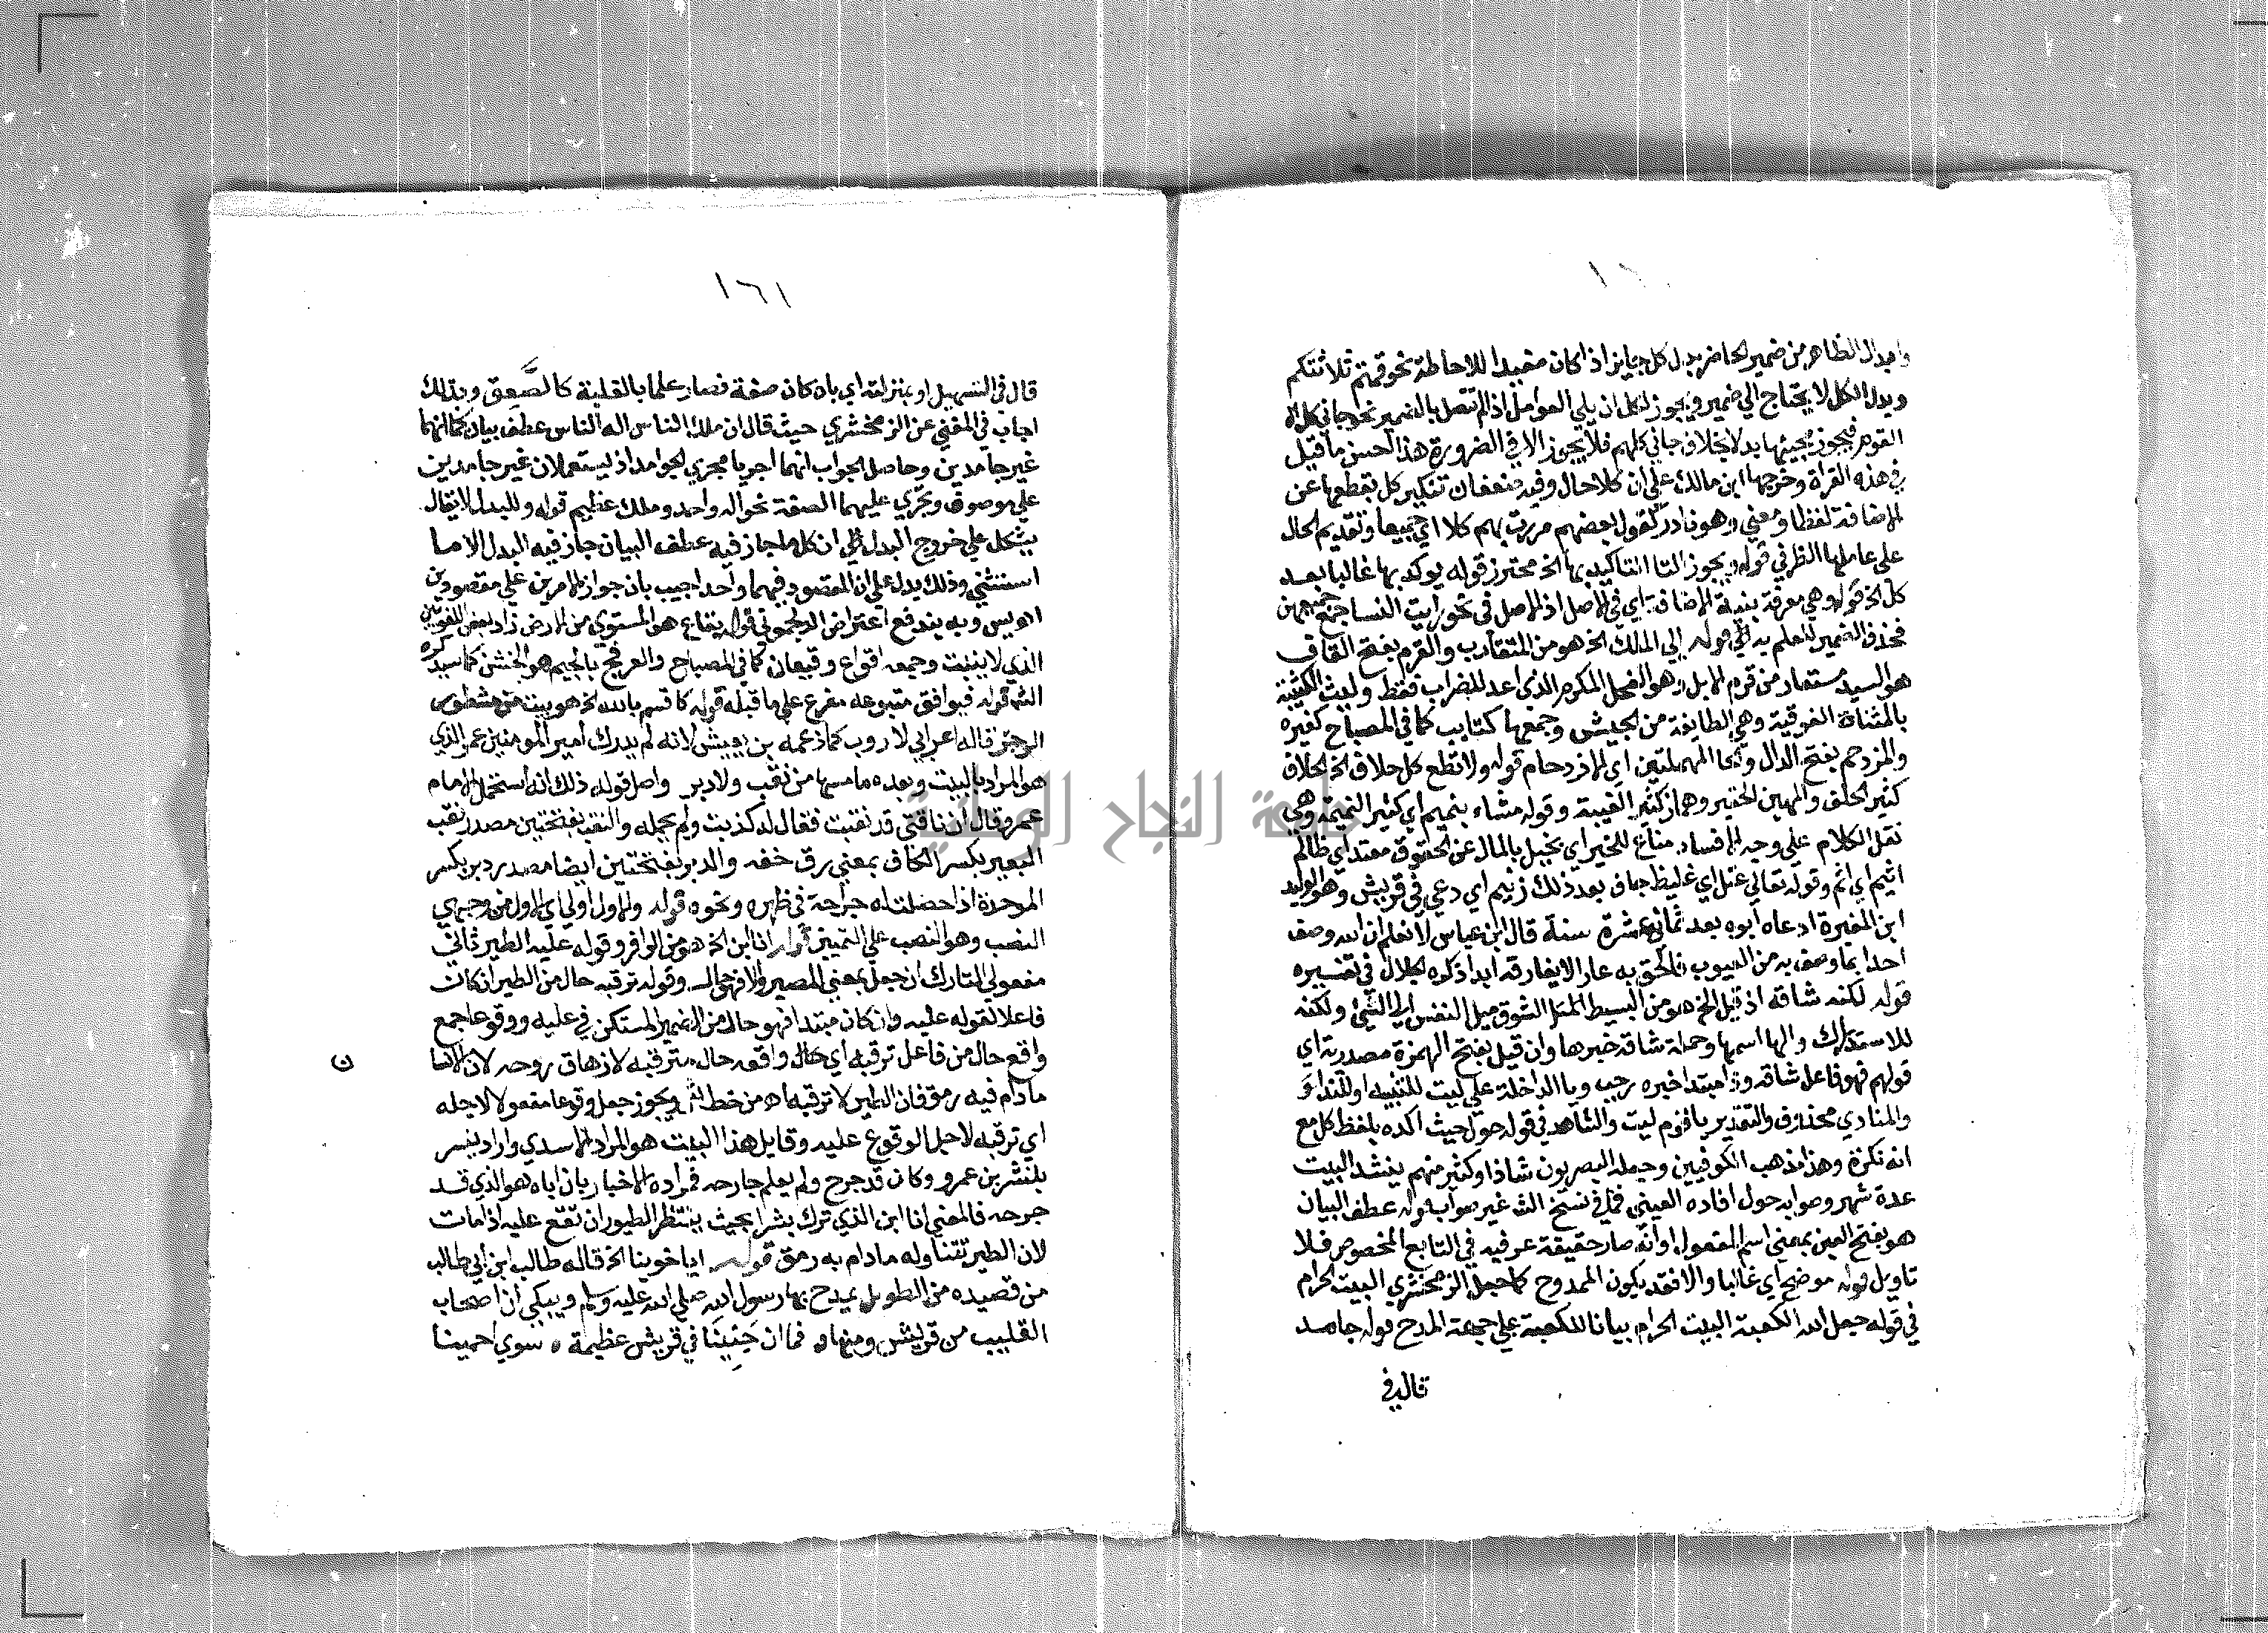 وابدال الظاهر من ضمير الحاضر بدل كل جايز اذا كان مفيدا للاحاطة نحو قمتم ثلاثتكم
وبدل الكل لا يحتاج الي ضمير ويجوز لكل ان يلي العوامل اذا لم تتصل بالضمير نحو جاني كل
القوم فيجوز مجيئها بدلا بخلاف جاني كلهم فلا يجوز الا في الضرورة هذا احسن ما قيل
في هذه القراة وخرجها ابن مالك علي ان كلا حال وفيه ضعفان تنكير كل بقطعها عن
الاضافة لفظا ومعني وهو نادر كقول بعضهم مررت بهم كلا اي جميعا وتقديم الحال
علي عاملها الظرفي قوله ويجوز التا التاكيد بها الخ محترز قوله يوكد بها غالبا بعد
كل الخ قوله وهي معرفة بنية الاضافة اي في الاصل اذ الاصل في نحو رايت النسا جمع جميعهن
فحذف الضمير للعلم به قوله الي الملك الخ هو من المتقارب والقرم بفتح القاف
هو السيد مستعار من قرم الابل وهو الفحل المكرم الذي اعد للضراب فقط وليث الكتيبة
بالمثناة الفوقية وهي الطايفة من الجيش وجمعها كتايب كما في المصباح كغيره
والمزدحم بفتح الدال والحا المهملتين اي الازدحام قوله ولا تطع كل حلاف الخ الحلاف
كثير الحلف والمهين الحقير وهماز كثير الغيبة وقوله مشاء بنميم اي كثير النميمة وهي
نقل الكلام علي وجه الافساد مناع للخير اي بخيل بالمال عن الحقوق معتد اي ظالم
اثيم اي اثم وقوله تعالي عتل اي غليظ جاف بعد ذلك زنيم اي دعي في قريش وهو الوليد
ابن المغيرة ادعاه ابوه بعد ثماني عشرة سنة قال ابن عباس لا نعلم ان الله وصف
احدا بما وصفه به من العيوب فالحق به عارا لا يفارقه ابدا ذكره الجلال في تفسيره
قوله لكنه شاقه اذ قيل الخ هو من البسيط الشوق ميل النفس الي الشئ ولكنه
للاستدراك والها اسمها وجملة شاقه خبرها وان قيل بفتح الهمزة مصدرية اي
قولهم فهو فاعل شاقه وذا مبتدا خبره رجب ويا الداخلة علي ليت للتنبيه او للنداء
والمنادي محذوف والتقدير يا قوم ليت والشاهد في قوله حول حيث اكده بلفظ كل مع
انه نكرة وهذا مذهب الكوفيين وجعله البصريون شاذا وكثير منهم ينشد البيت
عدة شهر وصوابه حول افاده العيني فما في نسخ الش غير صواب قوله عطف البيان
هو بفتح العين بمعني اسم المفعول او انه صار حقيقة عرفية في التابع المخصوص فلا
تاويل قوله موضح اي غالبا والا فقد يكون للمدح كما جعل الزمخشري البيت الحرام
في قوله جعل الله الكعبة البيت الحرام بيانا للكعبة علي جهة المدح قوله جامد
قال في
١٦١
قال في التسهيل او بمنزلته اي بان كان صفة فصار علما بالغلبة كالصَّعِق وبذلك
اجاب في المغني عن الزمخشري حيث قال ان ملك الناس اله الناس عطف بيان كما انهما
غير جامدين وحاصل الجواب انهما اجريا مجري الجوامد اذ يستعملان غير جامدين
علي موصوف وتجري عليهما الصفة نحو اله واحد وملك عظيم قوله وللبدل لا يقال
يشكل علي خروج البدل ان كل ما جاز فيه عطف البيان جاز فيه البدل الا ما
استثني وذلك يدل علي ان المقصود فيهما واحد اجيب بان جواز الامرين علي مقصودين
وبه يندفع اعتراض الدلجموني قوله بقاع هو المستوي من الارض زاد بعض اللغويين
الذي لا ينبت وجمعه اقواع وقيعان كما في المصباح والعرفج بالجيم هو الخشن كما سيذكره
الش قوله فيوافق متبوعه مفرع علي ما قبله قوله كاقسم بالله الخ هو بيت من مشطور
الرجز قاله اعرابي لا روب كما زعمه بن يعيش لانه لم يدرك امير المومنين عمر الذي
هو المراد بالبيت وبعده ما مسها من نقب ولا دبر واصل قوله ذلك انه استحمل الامام
عمر وقال ان ناقتي قد نقبت فقال له كذبت ولم يحمله والنقب بفتحتين مصدر نقب
البعير بكسر القاف بمعني رق خفه والدبر بفتحتين ايضا مصدر دبر بكسر
الموحدة اذا حصلت له جراحة في ظهره ونحوه قوله والاول اولي اي الاول من وجهي
النصب وهو النصب علي التمييز قوله انا ابن الخ هو من الوافر وقوله عليه الطير ثاني
مفعولي التارك ان جعل بمعني المصير والا فهو حال وقوله ترقبه حال من الطير ان كانت
فاعلا لقوله عليه وان كان مبتدا فهو حال من الضمير المستكن في عليه ووقوعا جمع
واقع حال من فاعل ترقبه اي حال واقعه حال مترقبه لازهاق روحه لان الانسا
ن
ما دام فيه رمق فان الطير لا ترقبه اه من خط الش ويجوز جعل وقوعا مفعولا لاجله
اي ترقبه لاجل الوقوع عليه وقايل هذا البيت هو المراد الاسدي واراد ببشر
بشر بن عمرو وكان قد جرح ولم يعلم جارحه فمراده الاخبار بان اباه هو الذي قد
جرحه فالمعني انا ابن الذي ترك بشرا بحيث ينتظر الطيور ان تقع عليه اذا مات
لان الطير تتناوله ما دام به رمق قوله ايا خوينا الخ قاله طالب ابن ابي طالب
من قصيده من الطويل يمدح بها رسول الله صلي الله عليه وسلم ويبكي ان اصحاب
القليب من قريش ومنها فما ان جنينا في قريش عظيمة سوي احمينا